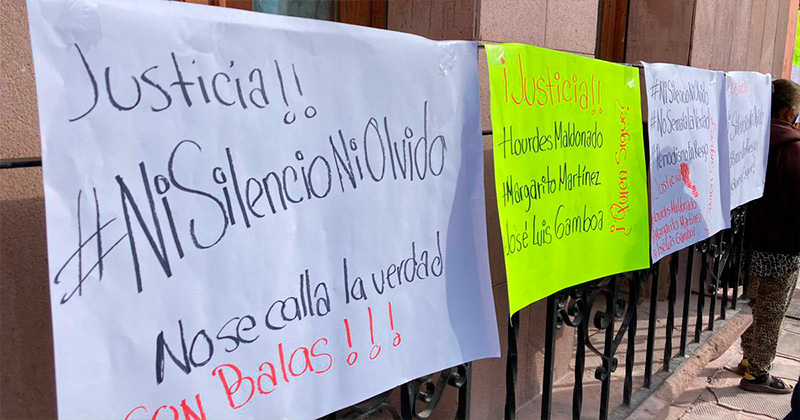 Justicia!!
#NiSilencioNiOlvido
No se calla la verdad
con Balas!!!
¡Justicia!!
#Lourdes Maldonado
#Margarito Martínez
José Luis Gamboa
¿Quien Sigue?
#NiSilencioNi
#NoSemata laVerdad
#Periodismo
Justicia
Lourdes Maldonado
Margarito Martínez
José Luis Gamboa
Justicia